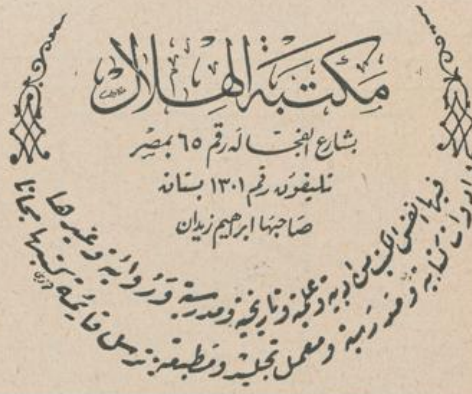 مكتبة الهلال
بشارع الفجاله رقم ٦٥ بمصر
تليفون رقم ١٣٠١ بستان
صاحبها ابراهيم زيدان
فيها انفس الكتب من ادبية وعلمية وتاريخية ومدرسية وروائية وغيرها
وادوات كتابية ومدرسية ومعمل تجليد ومطبعة: ترسل قائمة كتبها مجانا